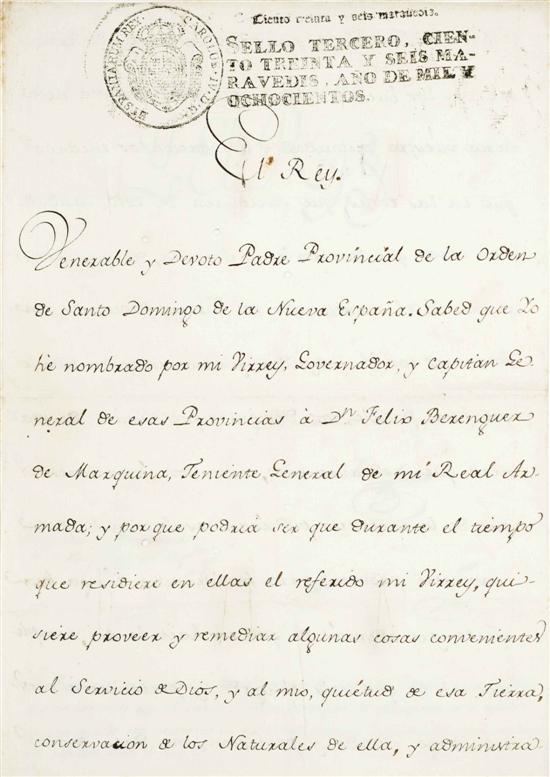 Ciento treinta y seis maravedis.
SELLO TERCERO, CIEN-
TO TREINTA Y SEIS MA-
RAVEDIS, AÑO DE MIL Y
OCHOCIENTOS.
CAROLUS IV D. G.
HISPANIAR. REX
El Rey.
Venerable y Devoto Padre Provincial de la Orden
de Santo Domingo de la Nueva España. Sabed que Yo
he nombrado por mi Virrey, Governador, y Capitan Ge-
neral de esas Provincias à Dn. Felix Berenguer
de Marquina, Teniente General de mi Real Ar-
mada; y por que podria ser que durante el tiempo
que residiere en ellas el referido mi Virrey, qui-
siere proveer y remediar algunas cosas convenientes
al Servicio de Dios, y al mio, quietud de esa Tierra,
conservacion de los Naturales de ella, y administra